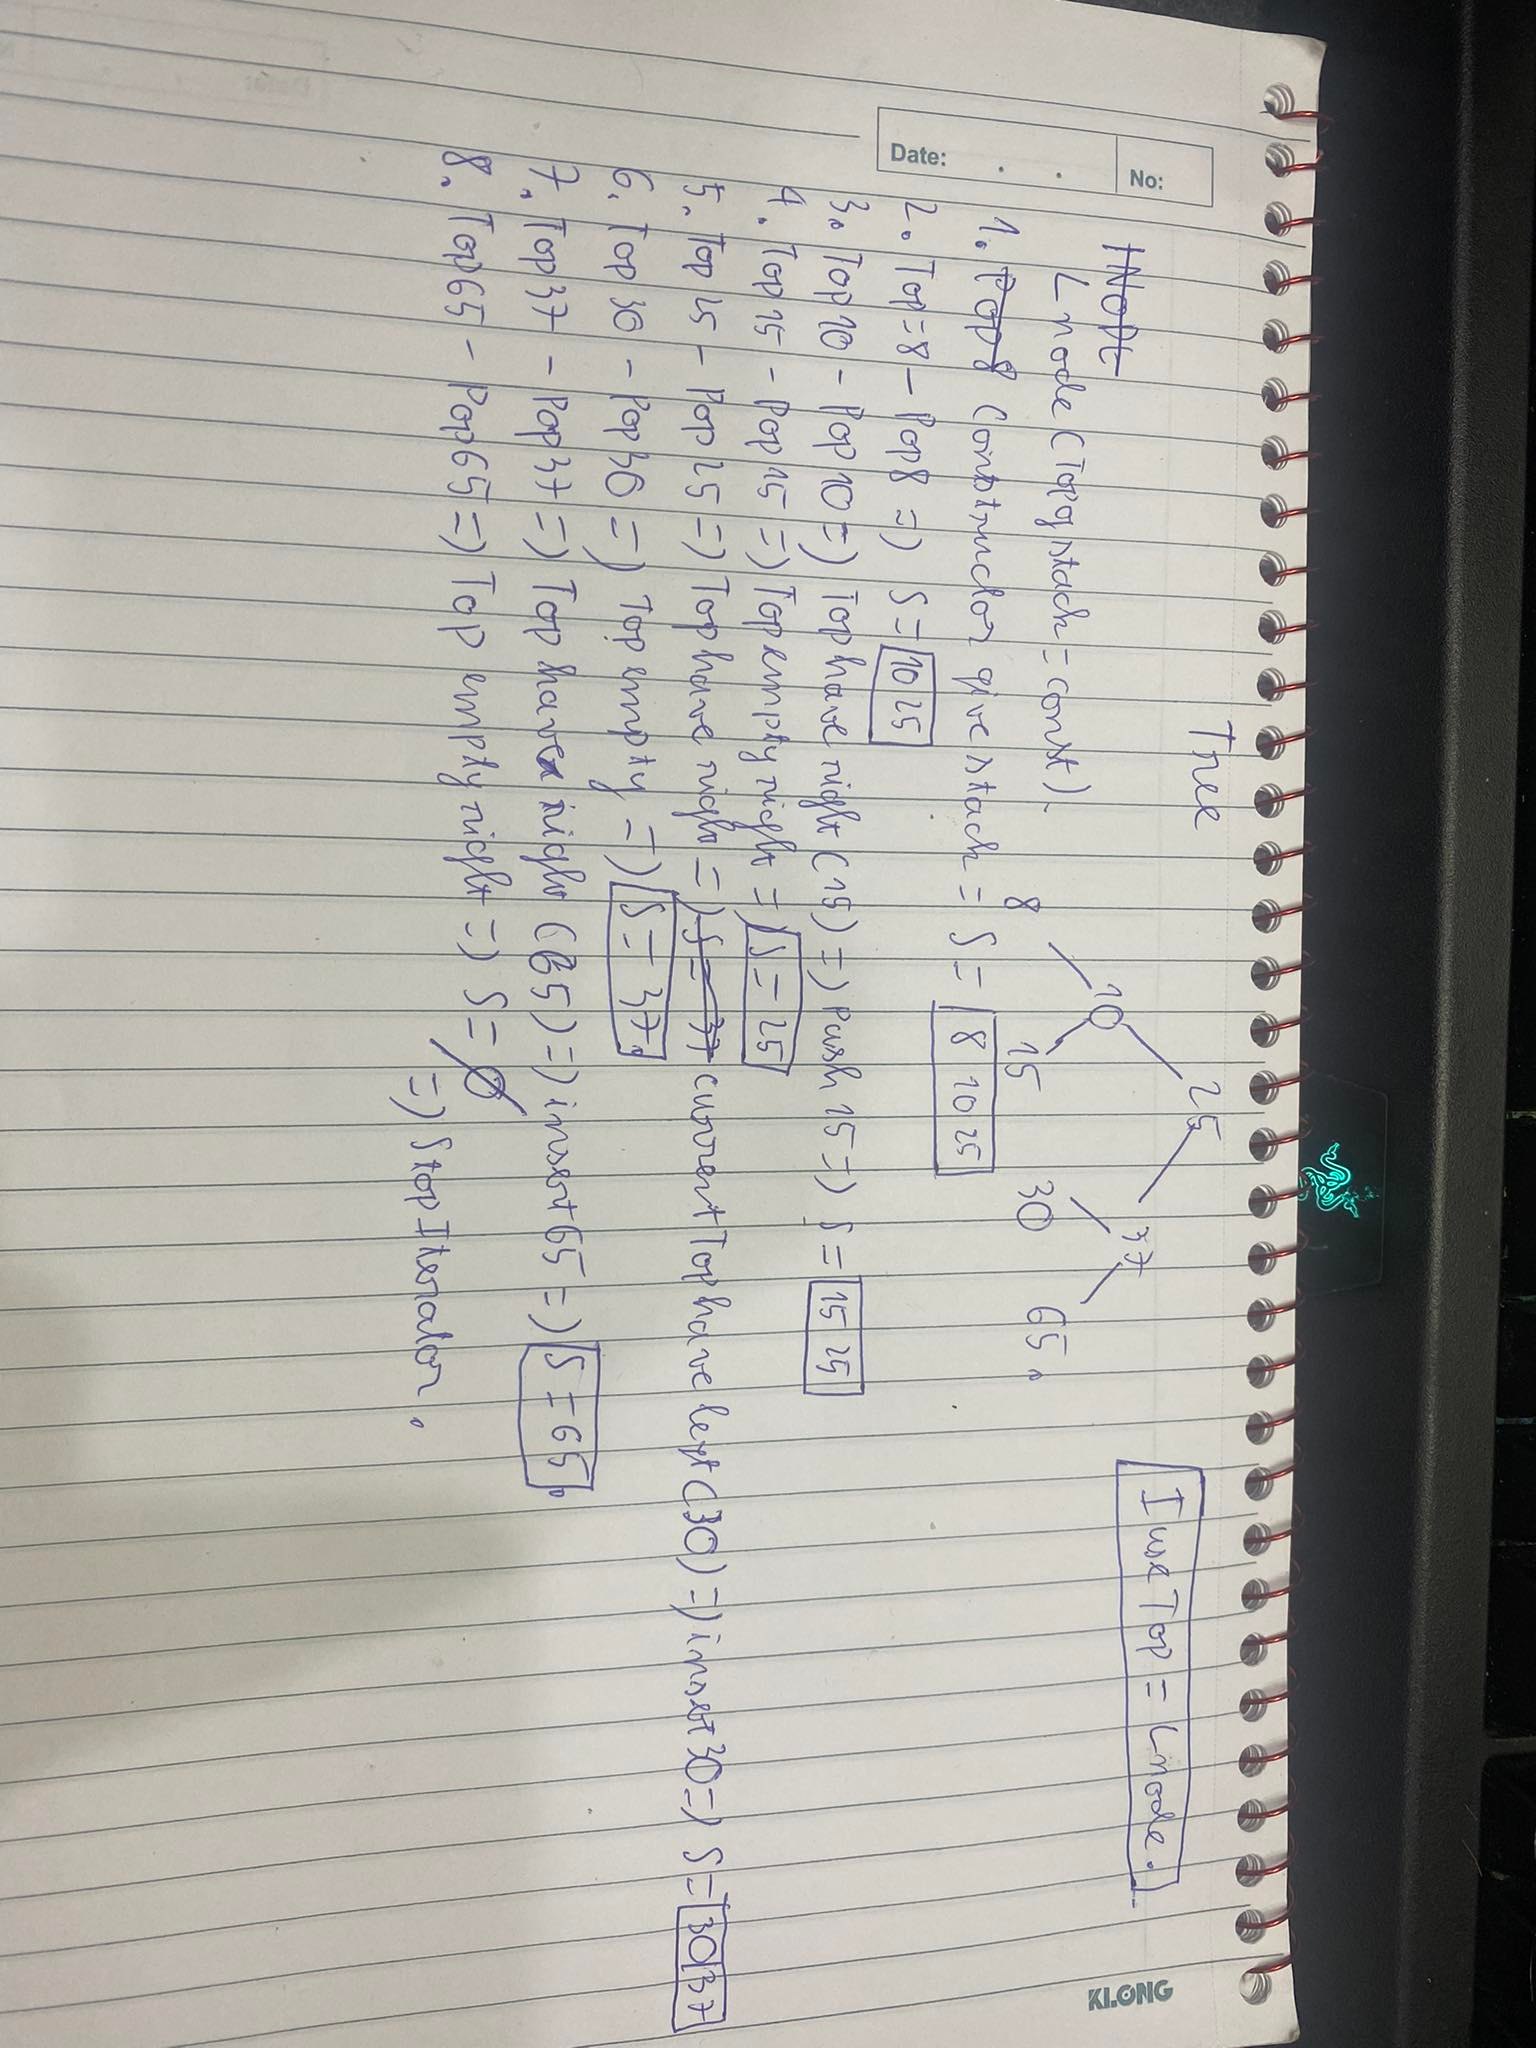 Tree
25
I use Top = Lnode.
10 37
8 15 30 65.
Lnode (Top of stack = const).
1. Pop 8 Constructor give stack = S = 8 10 25
2. Top = 8 - Pop 8 => S = 10 25
3. Top 10 - Pop 10 => Top have right (15) => Push 15 => S = 15 25
4. Top 15 - Pop 15 => Top empty right => S = 25
5. Top 25 - Pop 25 => Top have right => S = 37 current Top have left (30) => insert 30 => S = 30 37
6. Top 30 - Pop 30 => Top empty => S = 37.
7. Top 37 - Pop 37 => Top have right (65) => insert 65 => S = 65.
8. Top 65 - Pop 65 => Top empty right => S = Ø
=> Stop Iterator.
No:
Date:
KLONG